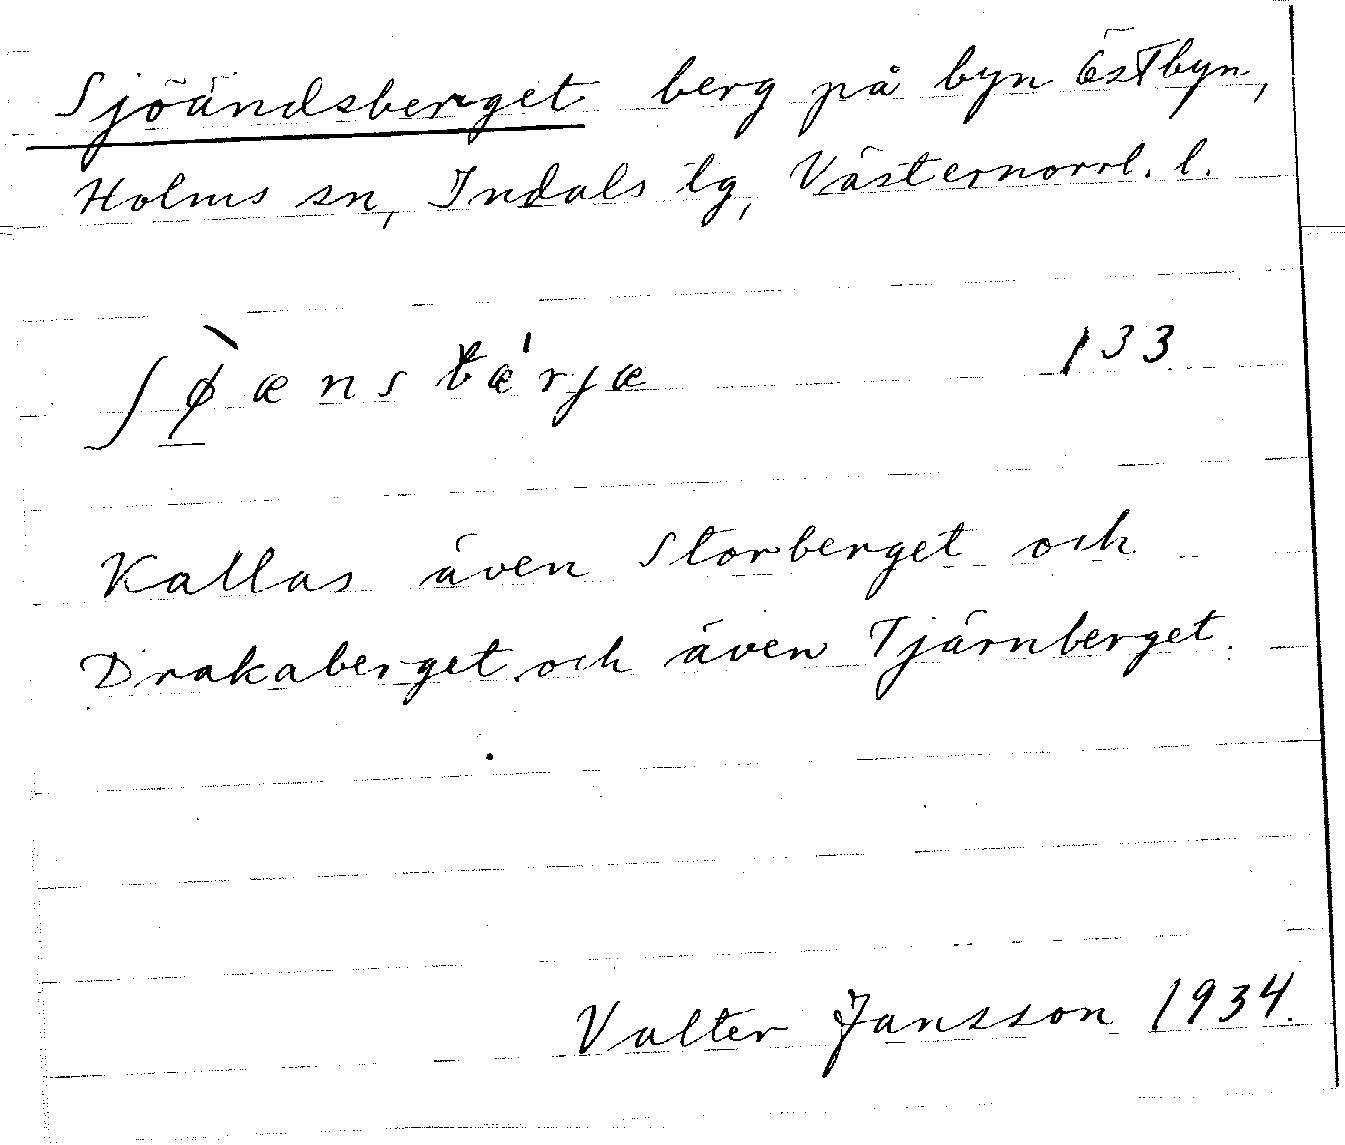 Sjöändsberget berg på byn Östbyn,
Holms sn, Indals tg, Västernorrl. l.
ʃø̀ænsbæ'rjæ 133
Kallas även Storberget och
Drakaberget och även Tjärnberget.
Valter Jansson 1934.